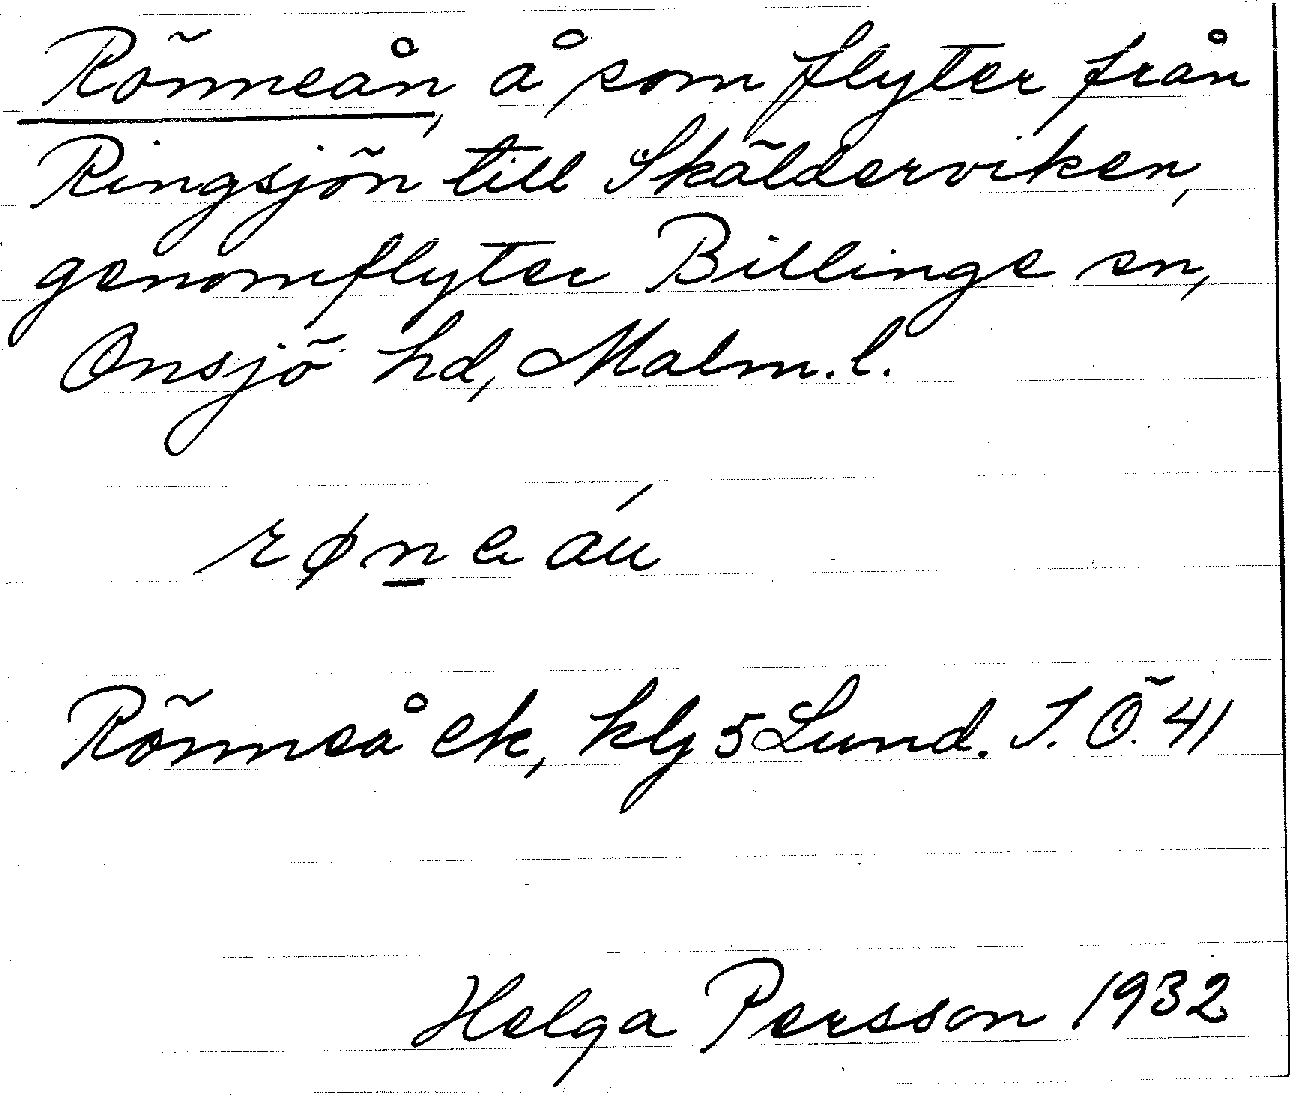 Rönneån, å som flyter från
Ringsjön till Skälderviken,
genomflyter Billinge sn,
Onsjö hd, Malm. l.
røn̲eáu
Rönneå ek, klj 5 Lund. S. Ö. 41
Helga Persson 1932